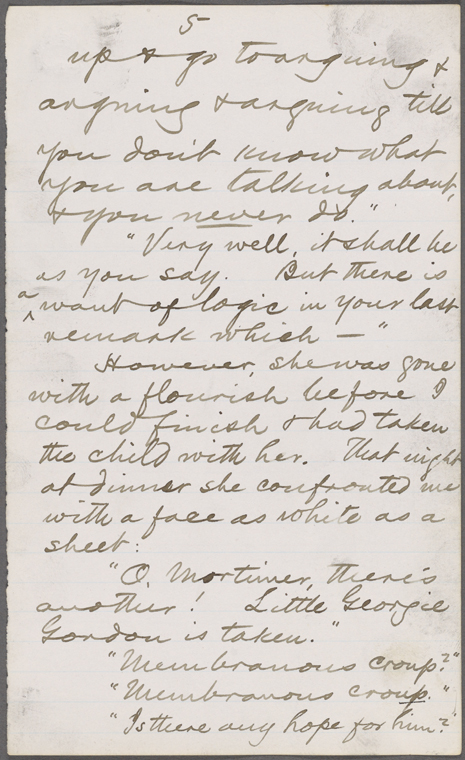 5
up & go to arguing &
arguing & arguing till
you don't know what
you are talking about,
& you never do."
"Very well, it shall be
as you say. But there is
a
^ want of logic in your last
remark which — "
However, she was gone
with a flourish before I
could finish & had taken
the child with her. That night
at dinner she confronted me
with a face as white as a
sheet:
"O, Mortimer, there's
another! Little Georgie
Gordon is taken."
"Membranous croup?"
"Membranous croup."
"Is there any hope for him?"